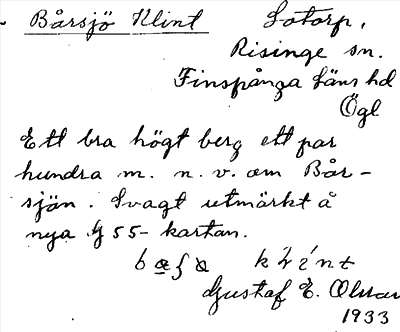 Bårsjö Klint
Sotorp,
Risinge sn.
Finspånga Läns hd
Ögl
Ett bra högt berg ett par
hundra m. n. v. om Bår-
sjön. Svagt utmärkt å
nya G 55-kartan.
Gustaf E. Olsson
1933